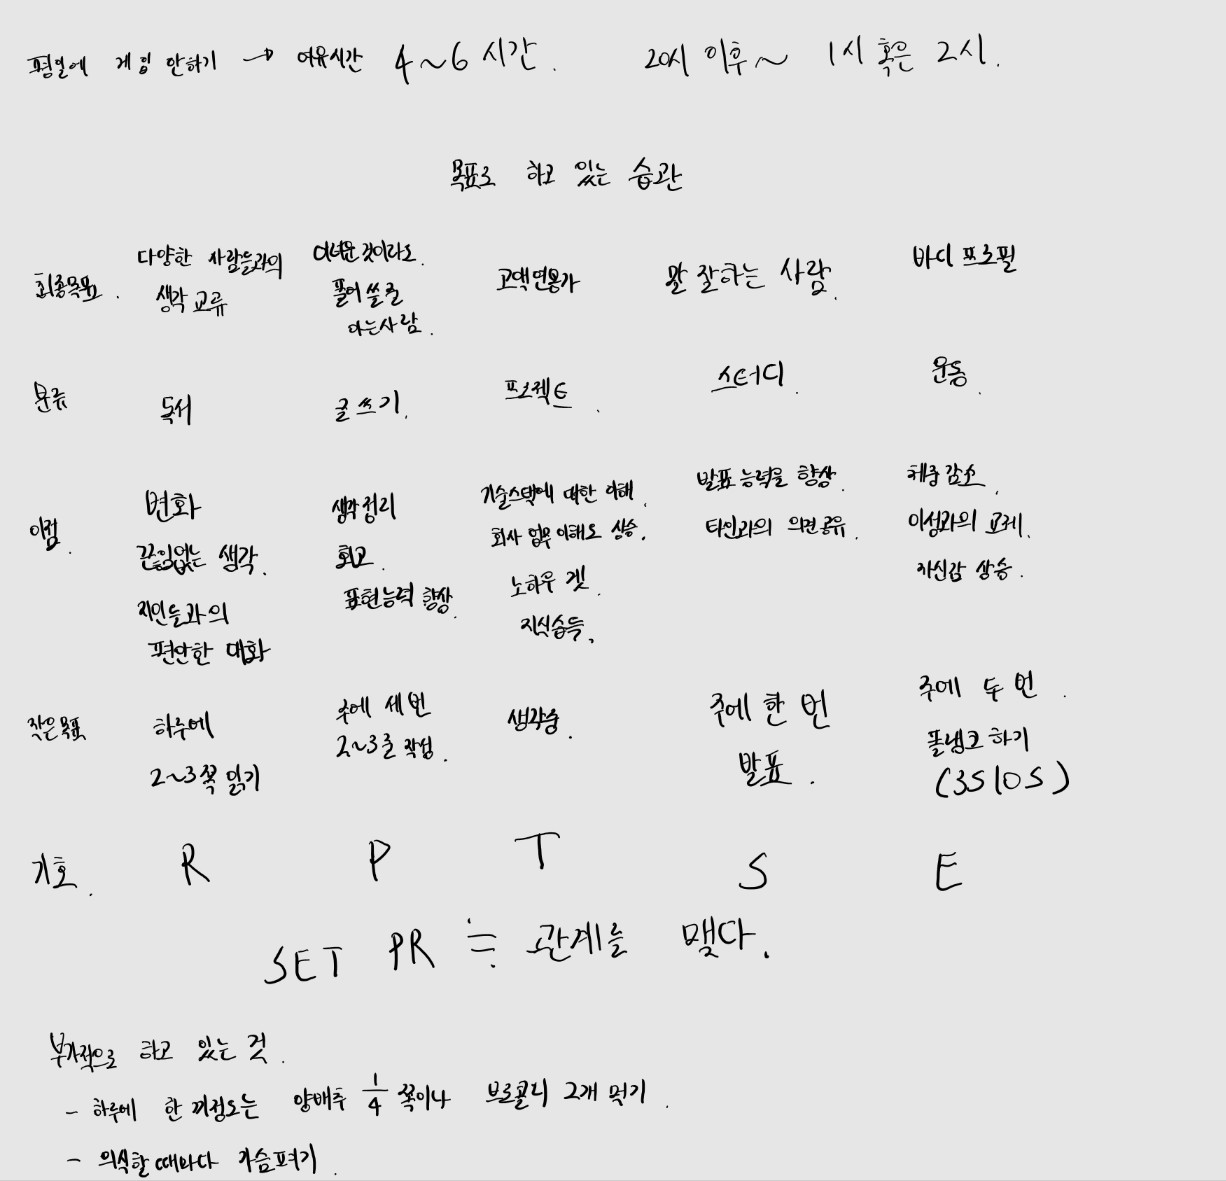 평일에 게임 안하기 → 여유시간 4~6 시간. 20시 이후~ 1시 혹은 2시.
목표로 하고 있는 습관
최종목표. 다양한 사람들과의 생각 교류 어려운 것이라도. 풀어 쓸 줄 아는 사람. 고액연봉자 말 잘하는 사람. 바디 프로필
분류 독서 글쓰기. 프로젝트. 스터디. 운동.
이점. 변화 생각정리 기술스택에 대한 이해. 발표 능력을 향상. 체중 감소.
끊임없는 생각. 회고. 회사 업무 이해도 상승. 타인과의 의견 공유. 이성과의 교제.
지인들과의 편안한 대화 표현능력 향상. 노하우 겟. 자신감 상승.
지식습득.
작은목표 하루에 2~3쪽 읽기 주에 세 번 2~3줄 작성. 생각중. 주에 한 번 발표. 주에 두 번. 풀냉크 하기 (3S10S)
기호. R P T S E
SET PR ≒ 관계를 맺다.
부가적으로 하고 있는 것.
- 하루에 한 끼정도는 양배추 1/4 쪽이나 브로콜리 2개 먹기.
- 의식할때마다 가슴펴기.